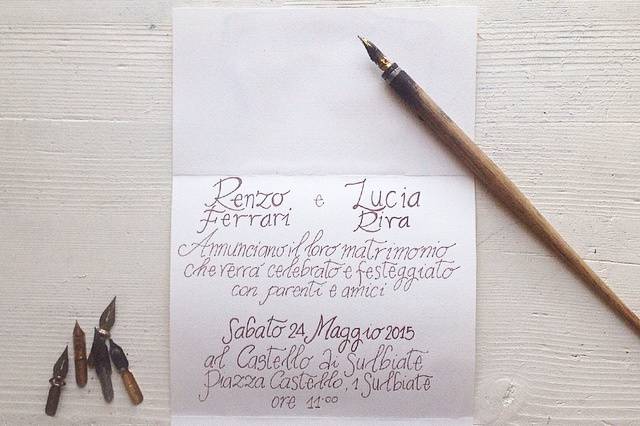 Renzo e Lucia
Ferrari Riva
Annunciano il loro matrimonio
che verrà celebrato e festeggiato
con parenti e amici
Sabato 24 Maggio 2015
al Castello di Sulbiate
Piazza Castello, 1 Sulbiate
ore 11.00